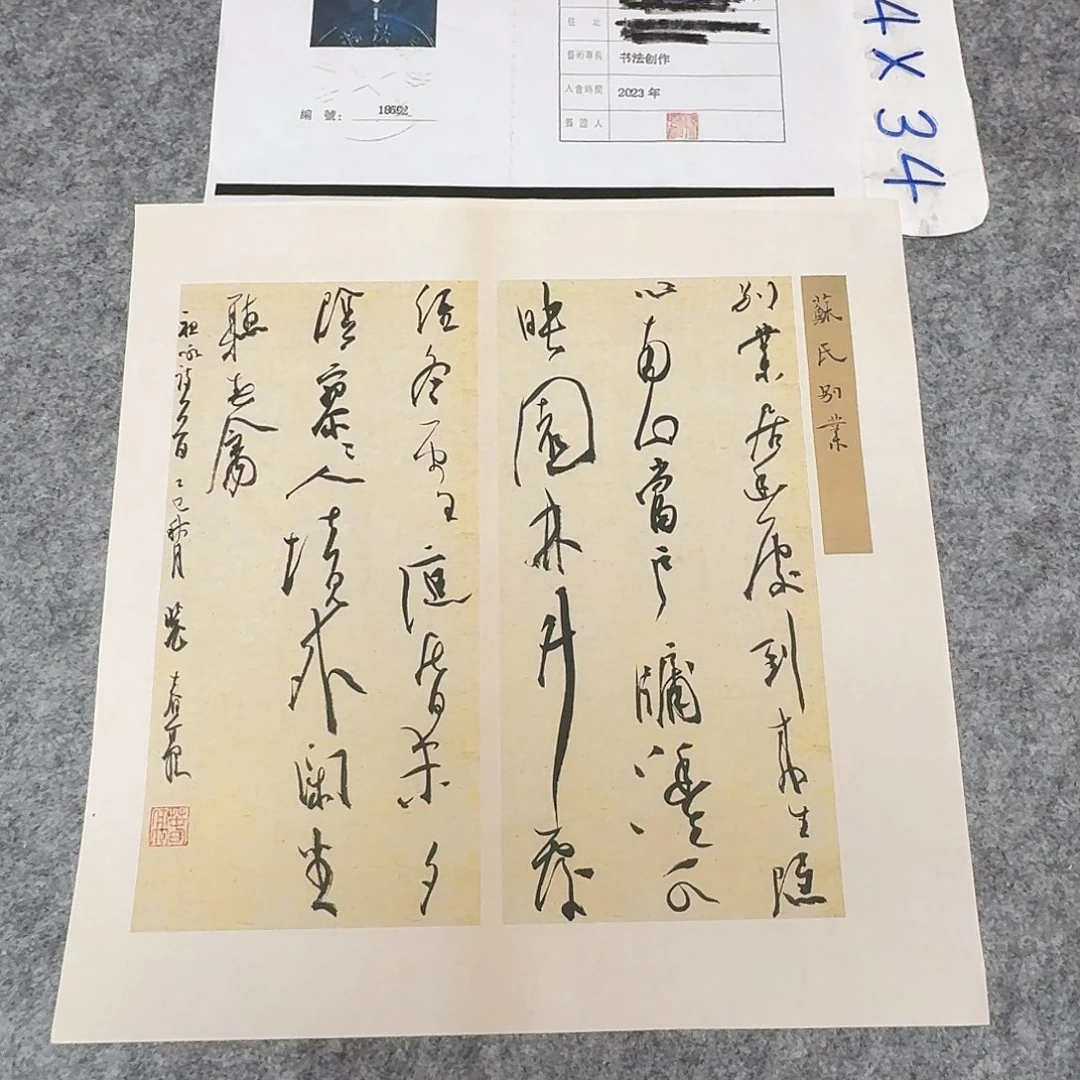 住 址
藝術專長 书法创作
入會時間 2023 年
簽證人
編 號: 18692
4X34
蘇氏別業
別業居幽處到來生隱
心南山當戶牖灃水
映園林竹覆
經冬雪庭昏未夕
陰寥〻人境外閑坐
聽春禽
祖詠詩一首 乙巳秋月